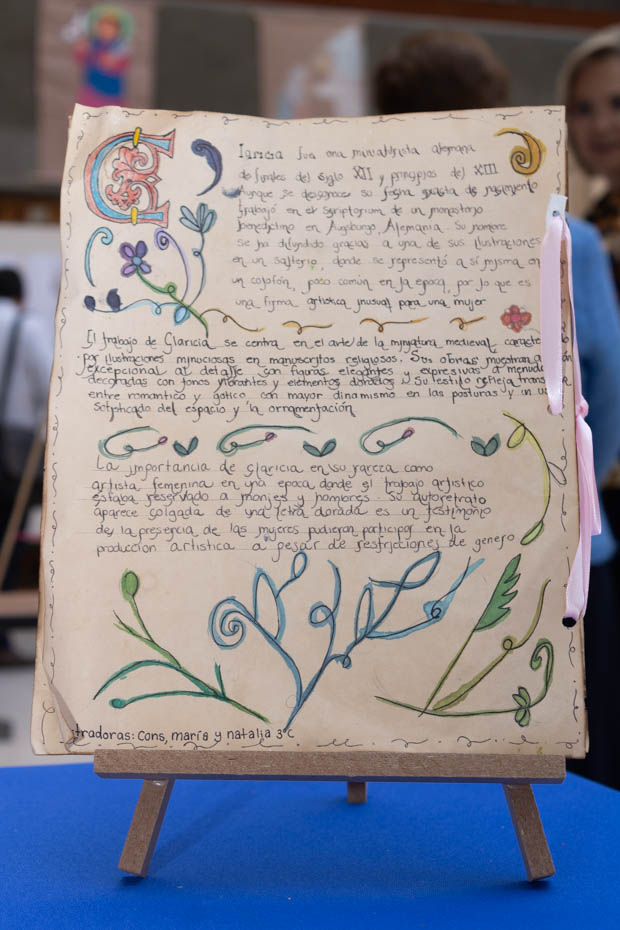 Claricia fue una miniaturista alemana
de finales del siglo XII y principios del XIII
Aunque se desconoce su fecha exacta de nacimiento
trabajó en el scriptorium de un monasterio
benedictino en Augsburgo, Alemania. Su nombre
se ha difundido gracias a una de sus ilustraciones
en un salterio, donde se representó a sí misma en
un colofón, poco común en la epoca, por lo que es
una firma artistica inusual para una mujer
El trabajo de Claricia se centra en el arte de la miniatura medieval, caracte
por ilustraciones minuciosas en manuscritos religiosos. Sus obras muestran a
excepcional al detalle con figuras elegantes y expresivas a menudo
decoradas con tonos vibrantes y elementos dorados. Su estilo refleja trans
entre romantico y gotico con mayor dinamismo en las posturas y in us
sofisticado del espacio y la ornamentación
La importancia de claricia en su rareza como
artista femenina en una epoca donde el trabajo artistico
estaba reservado a monjes y hombres. Su autoretrato
aparece colgada de una letra dorada es un testimonio
de la presencia de las mujeres pudieron participar en la
producción artistica a pesar de restricciones de genero
tradoras: Cons, maría y natalia 3°C